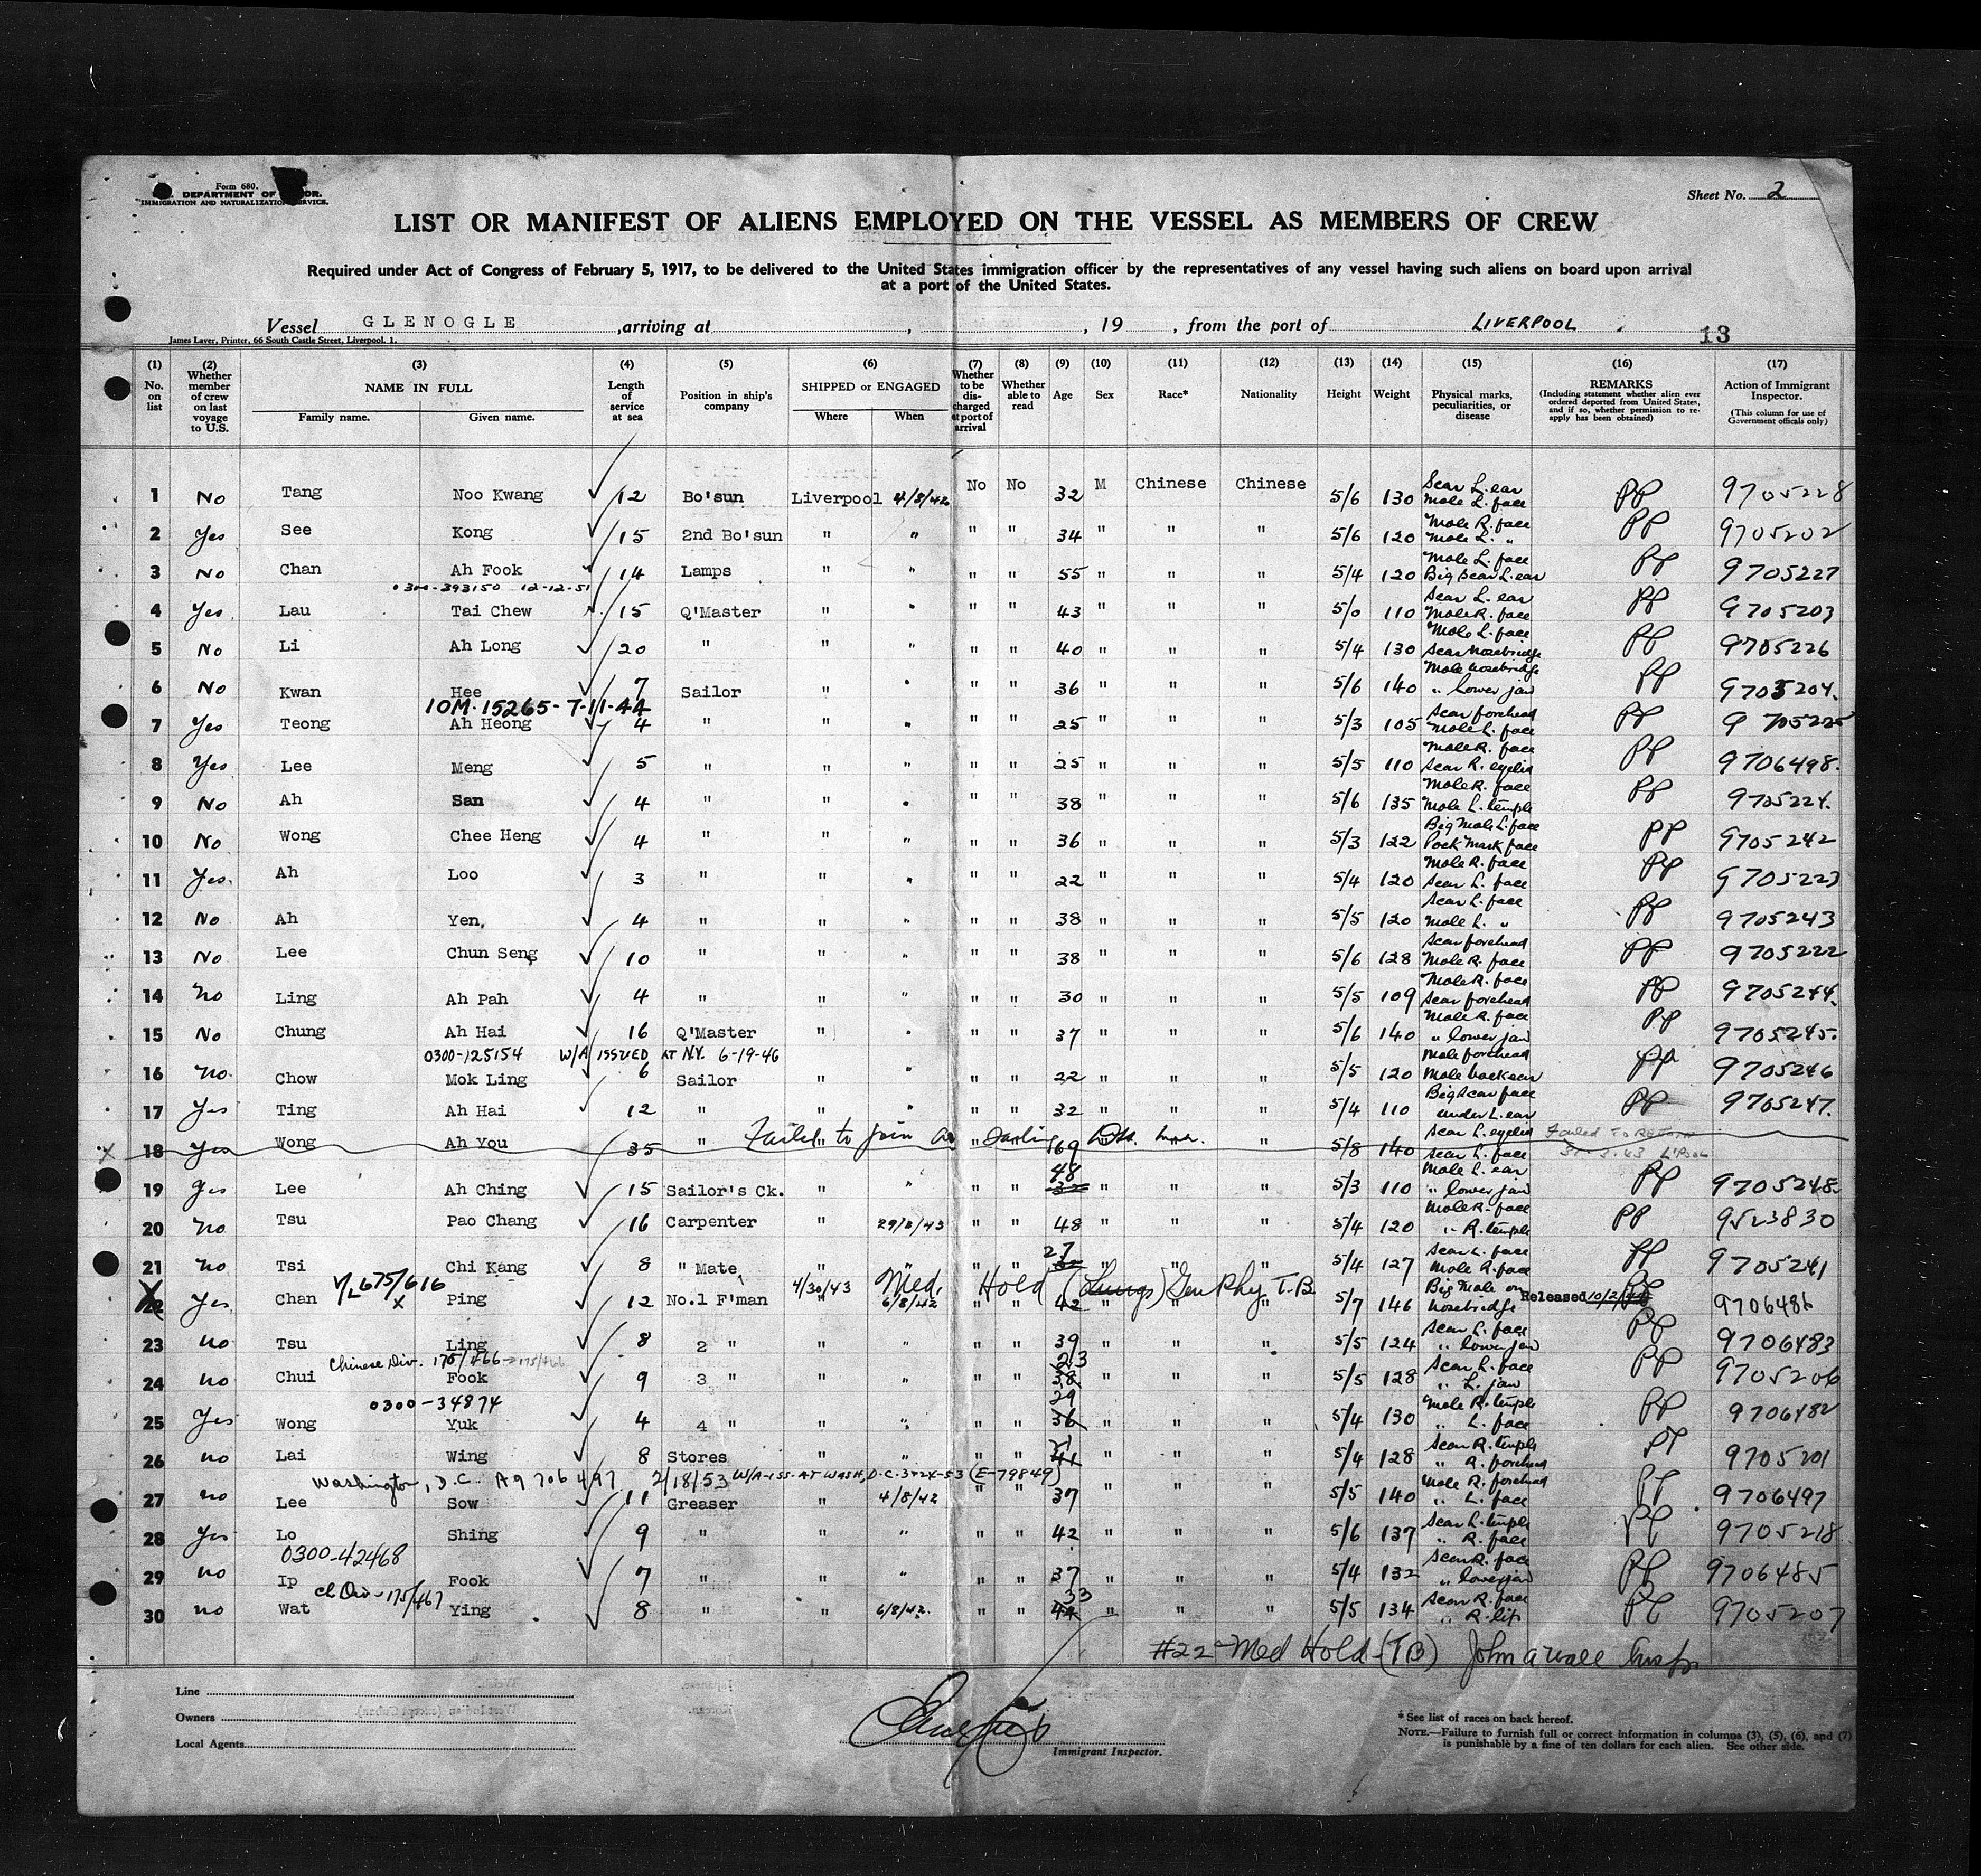 Form 680.
DEPARTMENT OF
IMMIGRATION AND NATURALIZATION SERVICE.
Sheet No. 2
LIST OR MANIFEST OF ALIENS EMPLOYED ON THE VESSEL AS MEMBERS OF CREW
Required under Act of Congress of February 5, 1917, to be delivered to the United States immigration officer by the representatives of any vessel having such aliens on board upon arrival
at a port of the United States.
Vessel GLENOGLE, arriving at , , 19 , from the port of LIVERPOOL
James Laver, Printer, 66 South Castle Street, Liverpool. 1.
13
(1) No. on list (2) Whether member of crew on last voyage to U.S. (3) NAME IN FULL Family name. Given name. (4) Length of service at sea (5) Position in ship's company (6) SHIPPED or ENGAGED Where When (7) Whether to be discharged at port of arrival (8) Whether able to read (9) Age (10) Sex (11) Race* (12) Nationality (13) Height (14) Weight (15) Physical marks, peculiarities, or disease (16) REMARKS (Including statement whether alien ever ordered deported from United States, and if so, whether permission to re-apply has been obtained) (17) Action of Immigrant Inspector. (This column for use of Government officials only)
1 No Tang Noo Kwang 12 Bo'sun Liverpool 4/8/42 No No 32 M Chinese Chinese 5/6 130 Scar L. ear Mole L. face PP 9705228
2 Yes See Kong 15 2nd Bo'sun " " " " 34 " " " 5/6 120 Mole R. face Mole L. " PP 9705202
3 No Chan Ah Fook 14 Lamps " " " " 55 " " " 5/4 120 Mole L. face Big Scar L. ear PP 9705227
0300-393150 12-12-51
4 Yes Lau Tai Chew 15 Q'Master " " " " 43 " " " 5/0 110 Scar L. ear Mole R. face PP 9705203
5 No Li Ah Long 20 " " " " " 40 " " " 5/4 130 Mole L. face Scar Nosebridge PP 9705226
6 No Kwan Hee 7 Sailor " " " " 36 " " " 5/6 140 Mole nosebridge " lower jaw PP 9705204.
10M-15265-7-11-44
7 Yes Teong Ah Heong 4 " " " " " 25 " " " 5/3 105 Scar forehead Mole L. face PP 9705225
8 Yes Lee Meng 5 " " " " " 25 " " " 5/5 110 Mole R. face Scar R. eyelid PP 9706498.
9 No Ah San 4 " " " " " 38 " " " 5/6 135 Mole R. face Mole L. temple PP 9705224.
10 No Wong Chee Heng 4 " " " " " 36 " " " 5/3 122 Big Mole L. face Pock Mark face PP 9705242
11 Yes. Ah Loo 3 " " " " " 22 " " " 5/4 120 Mole R. face Scar L. face PP 9705223
12 No Ah Yen, 4 " " " " " 38 " " " 5/5 120 Scar L. face Mole L. " PP 9705243
13 No Lee Chun Seng 10 " " " " " 38 " " " 5/6 128 Scar forehead Mole R. face PP 9705222
14 No Ling Ah Pah 4 " " " " " 30 " " " 5/5 109 Mole R. face Scar forehead PP 9705244.
15 No Chung Ah Hai 16 Q'Master " " " " 37 " " " 5/6 140 Mole R. face " lower jaw PP 9705245.
0300-125154 W/A ISSUED AT N.Y. 6-19-46
16 No. Chow Mok Ling 6 Sailor " " " " 22 " " " 5/5 120 Mole forehead Mole back ear PP 9705246
17 Yes Ting Ah Hai 12 " " " " " 32 " " " 5/4 110 Big Scar face under L. ear PP 9705247.
18 Yes Wong Ah You 35 " Failed to join 69 " 5/8 140 Scar L. eyelid Scar L. face Failed To Return L'Pool
19 Yes Lee Ah Ching 15 Sailor's Ck. " " " " 48 " " " 5/3 110 Mole L. ear " lower jaw PP 9705248.
20 No Tsu Pao Chang 16 Carpenter " 29/3/43 " " 48 " " " 5/4 120 Mole R. face " R. temple PP 9523830
21 No Tsi Chi Kang 8 " Mate " " " " 27 " " " 5/4 127 Scar L. face Mole R. face PP 9705241
675/616 4/30/43 Med. Hold (Lungs) T.B
22 Yes Chan Ping 12 No.1 F'man " 6/8/42 " " 42 " " " 5/7 146 Big Mole on nosebridge Released 9706486
23 No Tsu Ling 8 2 " " " " " 39 " " " 5/5 124 Scar L. face " lower jaw PP 9706483
Chinese Div. 175/466 175/466
24 No Chui Fook 9 3 " " " " " 23 38 " " " 5/5 128 Scar R. face " L. jaw PP 9705206
0300-34874
25 Yes Wong Yuk 4 4 " " " " " 29 36 " " " 5/4 130 Mole R. temple " L. face PP 9706482
26 No Lai Wing 8 Stores " " " " 41 " " " 5/4 128 Scar R. temple " R. forehead PP 9705201
Washington, D.C. A9706497 2/18/53 W/A-ISS. AT WASH, D.C. 3-24-53 (E-79849)
27 No Lee Sow 11 Greaser " 4/8/42 " " 37 " " " 5/5 140 Mole R. forehead " L. face PP 9706497
28 Yes Lo Shing 9 " " " " " 42 " " " 5/6 137 Scar L. temple " R. face PP 9705218
0300-42468
29 No Ip Fook 7 " " " " " 37 " " " 5/4 132 Scar R. face " lower jaw PP 9706485
Ch Div-175/467
30 No Wat Ying 8 " " 6/8/42. " " 33 44 " " " 5/5 134 Scar R. face " R. lip PP 9705207
#22 - Med Hold - (TB) John A Wall Insp.
Line
Owners
Local Agents
Immigrant Inspector.
* See list of races on back hereof.
NOTE.—Failure to furnish full or correct information in columns (3), (5), (6), and (7)
is punishable by a fine of ten dollars for each alien. See other side.